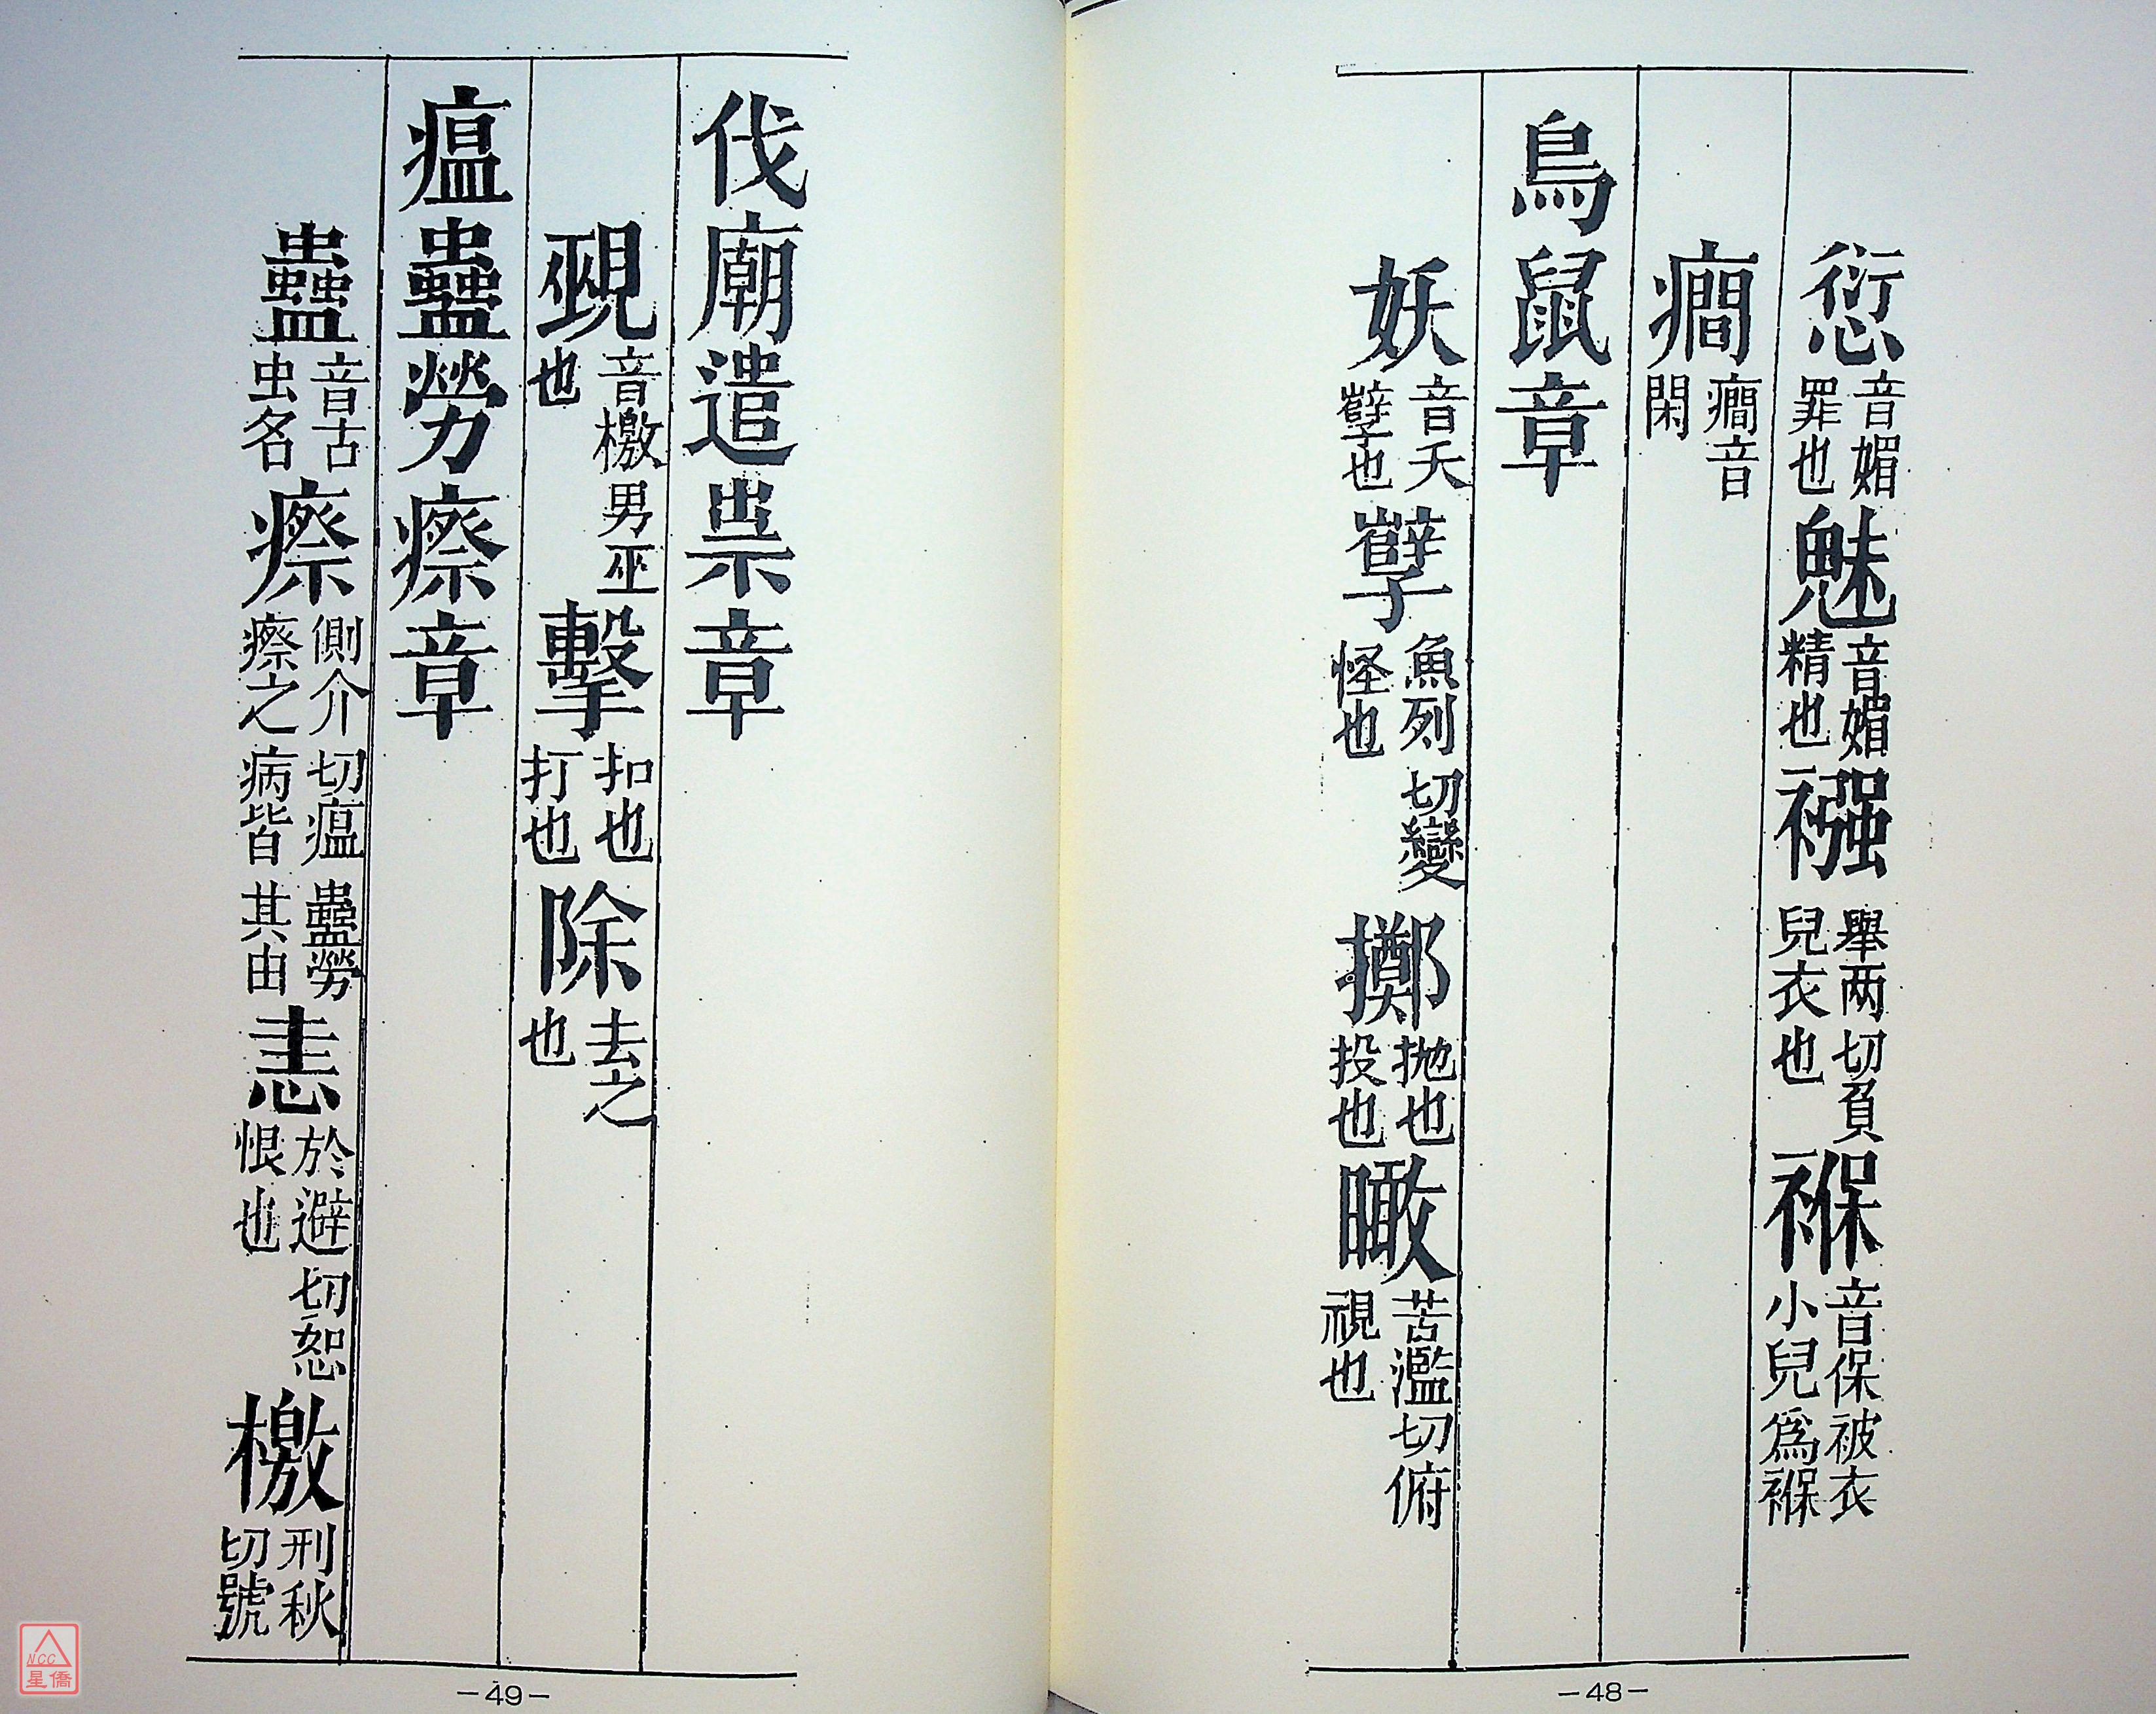 愆音媚罪也魅音媚精也襁舉两切負兒衣也褓音保被衣小兒爲褓
癎癎音閑
鳥鼠章
妖音夭孼也孼魚列切變怪也擲抛也投也瞰苦濫切俯視也
—48—
伐廟遣祟章
覡音檄男巫也擊扣也打也除去之也
瘟蠱勞瘵章
蠱音古虫名瘵側介切瘟蠱勞瘵之病皆其由恚於避切恕恨也檄刑秋切號
—49—
NCC
星僑